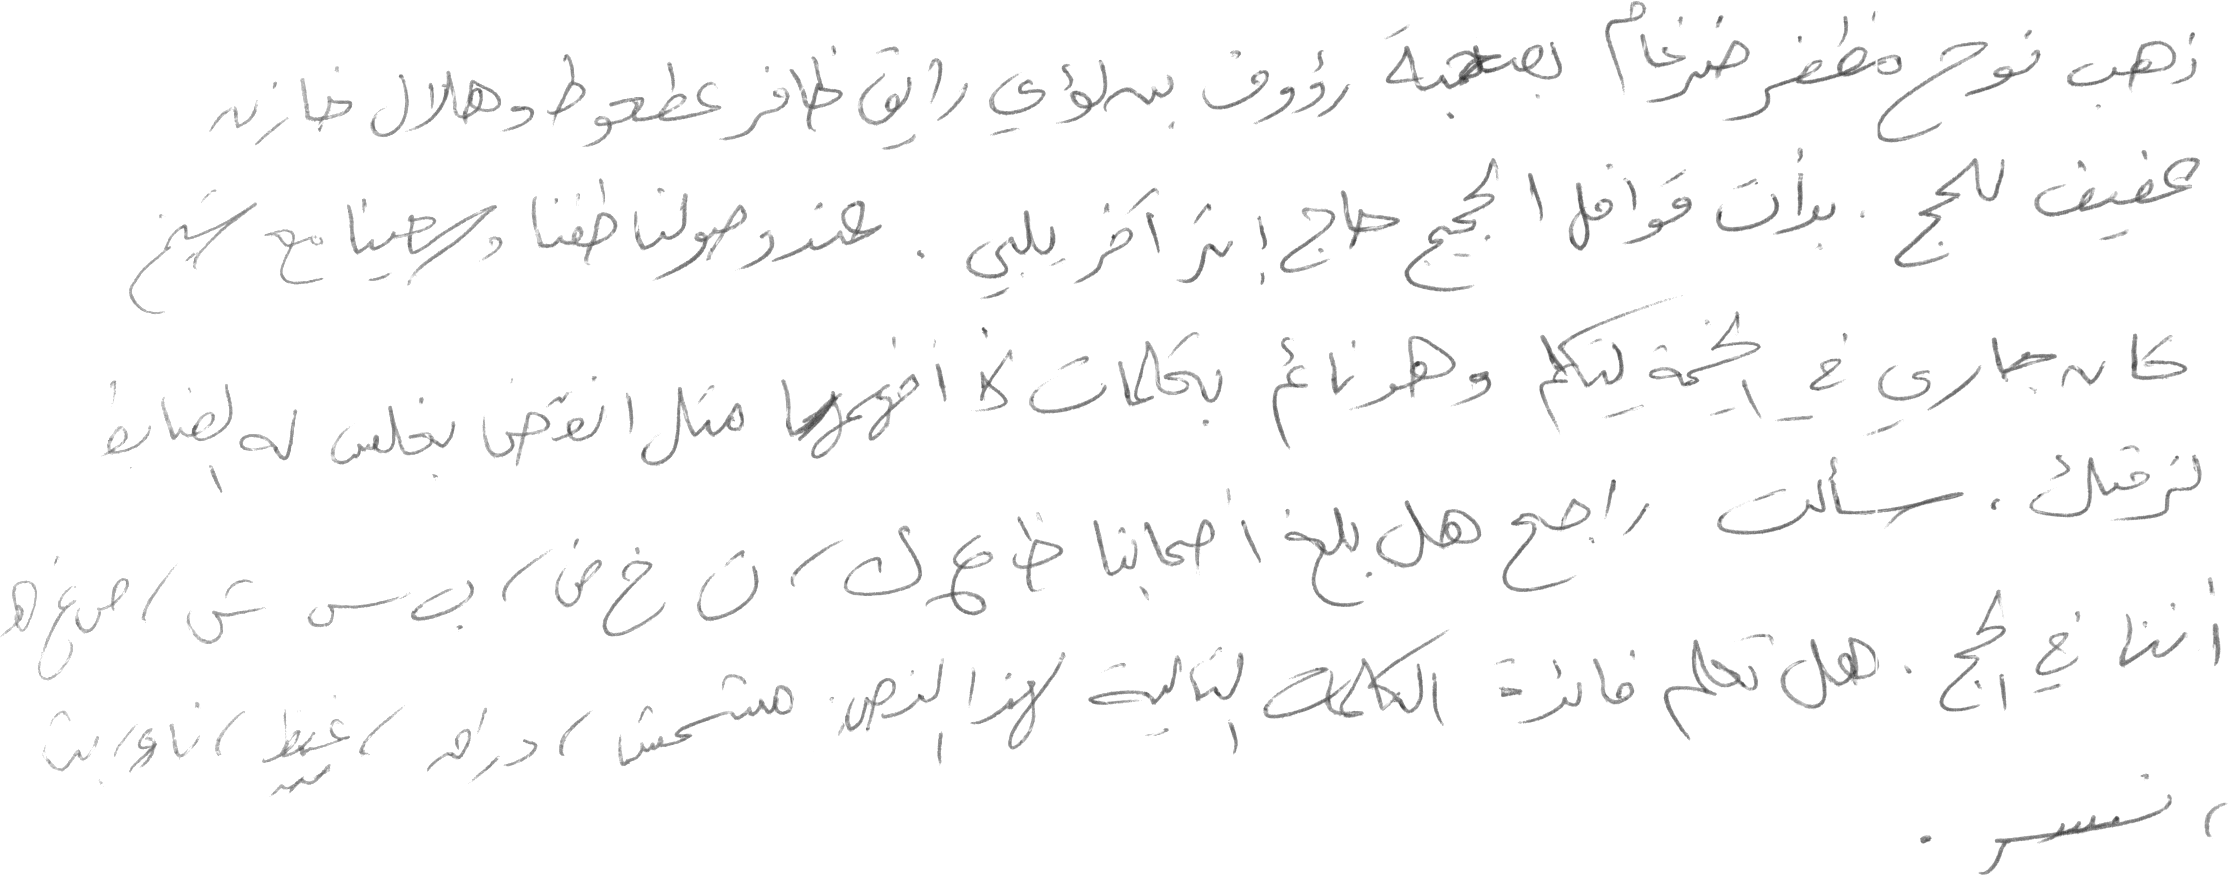 ذهب نوح مظفر ضرغام بصحبة رؤوف بن لؤي رايق ظافر عطعوط وهلال خازن
عفيف للحج . بدأت قوافل الحجيج حاج إثر آخر يلبي . عند وصولنا طفنا وسعينا مع شيخ
كان جاري في الخيمة ليتكلم وهو نائم بكلمات لا أفهمها مثل انقض بغلس له الضابط
لزقتك . سألت راجح هل بلغ أصحابنا ظ ع ك ، ت خ ض ، ب س ش ، ص غ ه
أننا في الحج . هل تعلم فائزة الكلمة التالية لهذا النص: مستحثا ، دراق ، غيظ ، ناء، بث
، نسر .